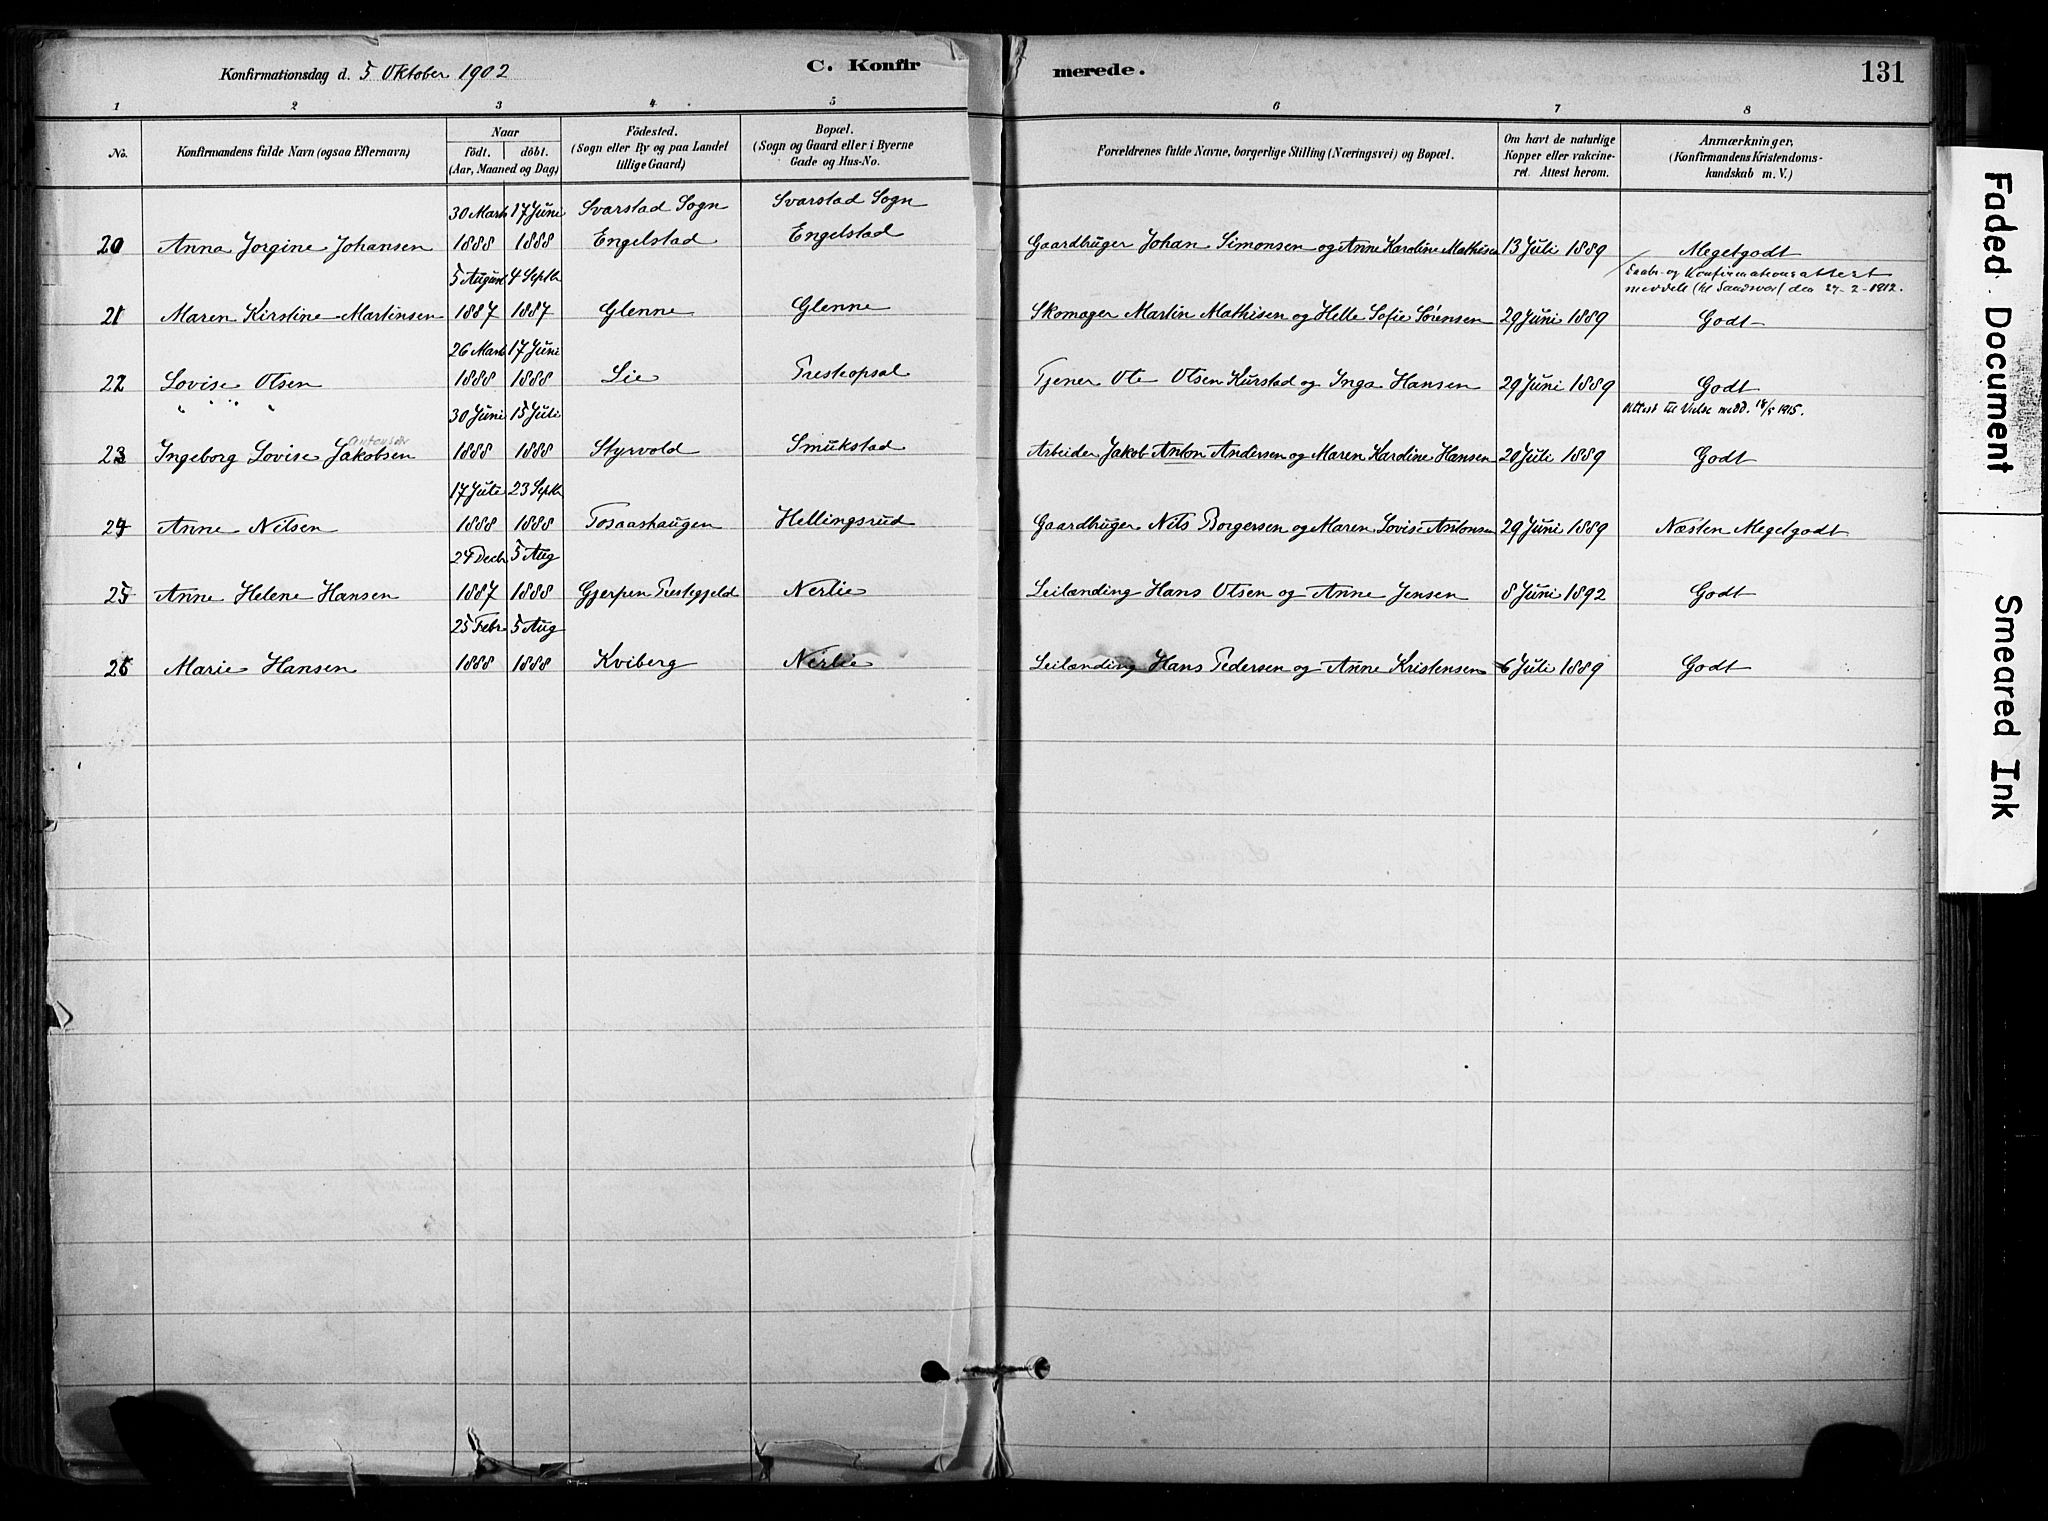 Konfirmationsdag d. 5 Oktober 1902 C. Konfirmerede. 131
1 2 3 4 5 6 7 8
No. Konfirmandens fulde Navn (ogsaa Efternavn)
Naar
Födt. döbt.
(Aar, Maaned og Dag)
Födested.
(Sogn eller By og paa Landet
tillige Gaard)
Bopæl.
(Sogn og Gaard eller i Byerne
Gade og Hus-No.
Forældrenes fulde Navne, borgerlige Stilling (Næringsvei) og Bopæl.
Om havt de naturlige
Kopper eller vakcine-
ret. Attest herom.
Anmærkninger,
(Konfirmandens Kristendoms-
kundskab m. V.)
30 Marts 17 Juni Svarstad Sogn Svarstad Sogn
20 Anna Jorgine Johansen 1888 1888 Engelstad Engelstad Gaardbruger Johan Simonsen og Anne Karoline Mathisen 13 Juli 1889 Megetgodt
5 August 4 Septb Daabs- og Konfirmationsattest
meddelt (til Sandsvær) den 27-2-1912.
21 Maren Kirstine Martinsen 1887 1887 Glenne Glenne Skomager Martin Mathisen og Helle Sofie Sørensen 29 Juni 1889 Godt
26 Marts 17 Juni
22 Lovise Olsen 1888 1888 Lie Presteopsal Tjener Ole Olsen Kurstad og Inga Hansen 29 Juni 1889 Godt
30 Juni 15 Juli Attest til Vielse medd. 18/5 1915.
Antonsen
23 Ingeborg Lovise Jakobsen 1888 1888 Styrvold Smukstad Arbeider Jakob Anton Andersen og Maren Karoline Hansen 20 Juli 1889 Godt
17 Juli 23 Septb
24 Anne Nilsen 1888 1888 Tosaashaugen Hellingsrud Gaardbruger Nils Borgersen og Maren Lovise Antonsen 29 Juni 1889 Næsten Megetgodt
24 Decbr 5 Aug
25 Anne Helene Hansen 1887 1888 Gjerpen Prestegjeld Nerlie Leilænding Hans Olsen og Anne Jensen 8 Juni 1892 Godt
25 Febr 5 Aug
26 Marie Hansen 1888 1888 Kviberg Nerlie Leilænding Hans Pedersen og Anne Kristensen 6 Juli 1889 Godt
Faded Document
Smeared Ink